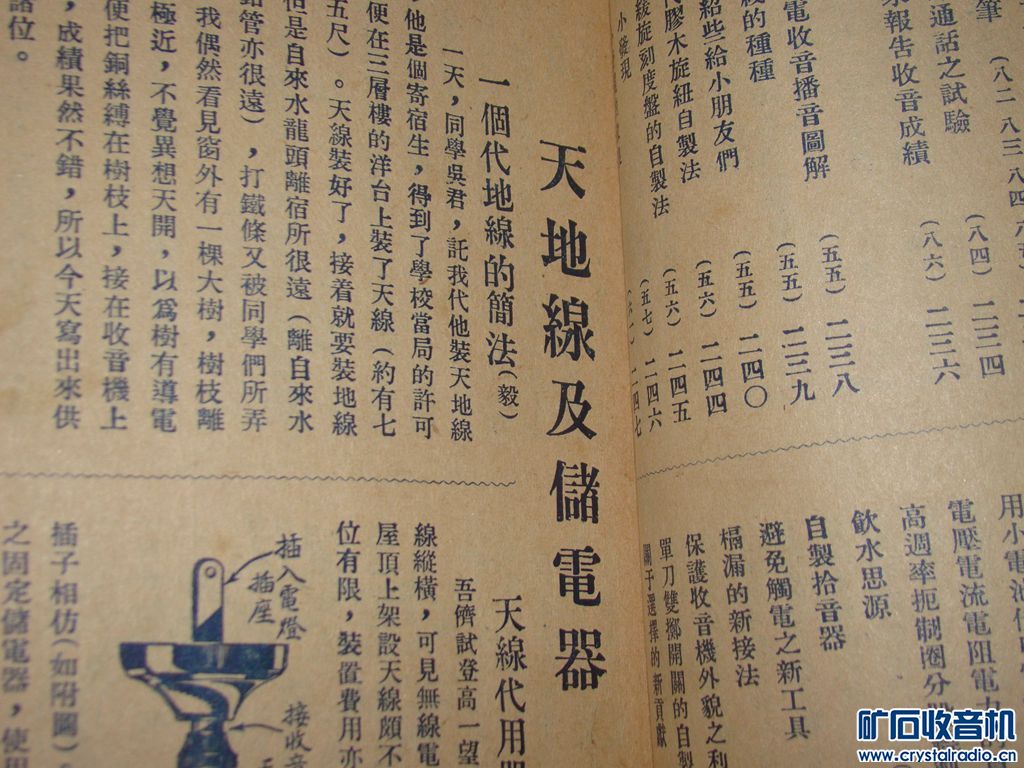 筆
(八二 八三 八四
(八四) 二三四
通話之試驗
報告收音成績
(八六) 二三六
電收音播音圖解
(五五) 二三八
的種種
(五五) 二三九
給些給小朋友們
(五五) 二四〇
代膠木旋紐自製法
(五六) 二四四
綫旋刻度盤的自製法
(五六) 二四五
(五七) 二四六
二四七
用小電池
電壓電流電阻電力
高週率扼制圈分
飲水思源
自製拾音器
避免觸電之新工具
榻漏的新接法
保護收音機外貌之利
單刀雙擲開關的自製
關于選擇的新貢獻
天地線及儲電器
一個代地線的簡法(毅)
一天,同學吳君,託我代他裝天地線
,他是個寄宿生,得到了學校當局的許可
便在三層樓的洋台上裝了天線(約有七
五尺)。天線裝好了,接着就要裝地線
是自來水龍頭離宿所很遠(離自來水
管亦很遠),打鐵條又被同學們所弄
我偶然看見窗外有一棵大樹,樹枝離
極近,不覺異想天開,以爲樹有導電
便把銅絲縛在樹枝上,接在收音機上
,成績果然不錯,所以今天寫出來供
諸位。
天線代用
吾儕試登高一望
線縱橫,可見無線電
屋頂上架設天線頗不
位有限,裝置費用亦
插入電燈
插座
接收音
插子相仿(如附圖)。
之固定儲電器,使用
矿石收音机
www.crystalradio.cn